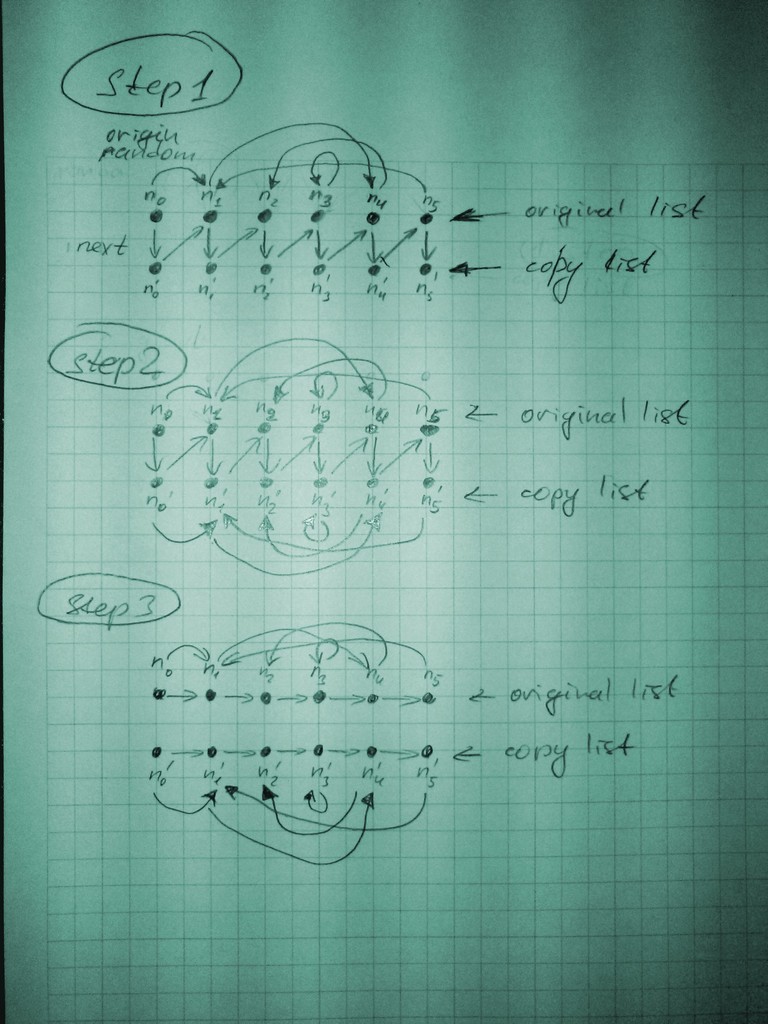 Step 1
origin
random
n₀ n₁ n₂ n₃ n₄ n₅ ← original list
next
n₀' n₁' n₂' n₃' n₄' n₅' ← copy list
step 2
n₀ n₁ n₂ n₃ n₄ n₅ ← original list
n₀' n₁' n₂' n₃' n₄' n₅' ← copy list
step 3
n₀ n₁ n₂ n₃ n₄ n₅ ← original list
n₀' n₁' n₂' n₃' n₄' n₅' ← copy list